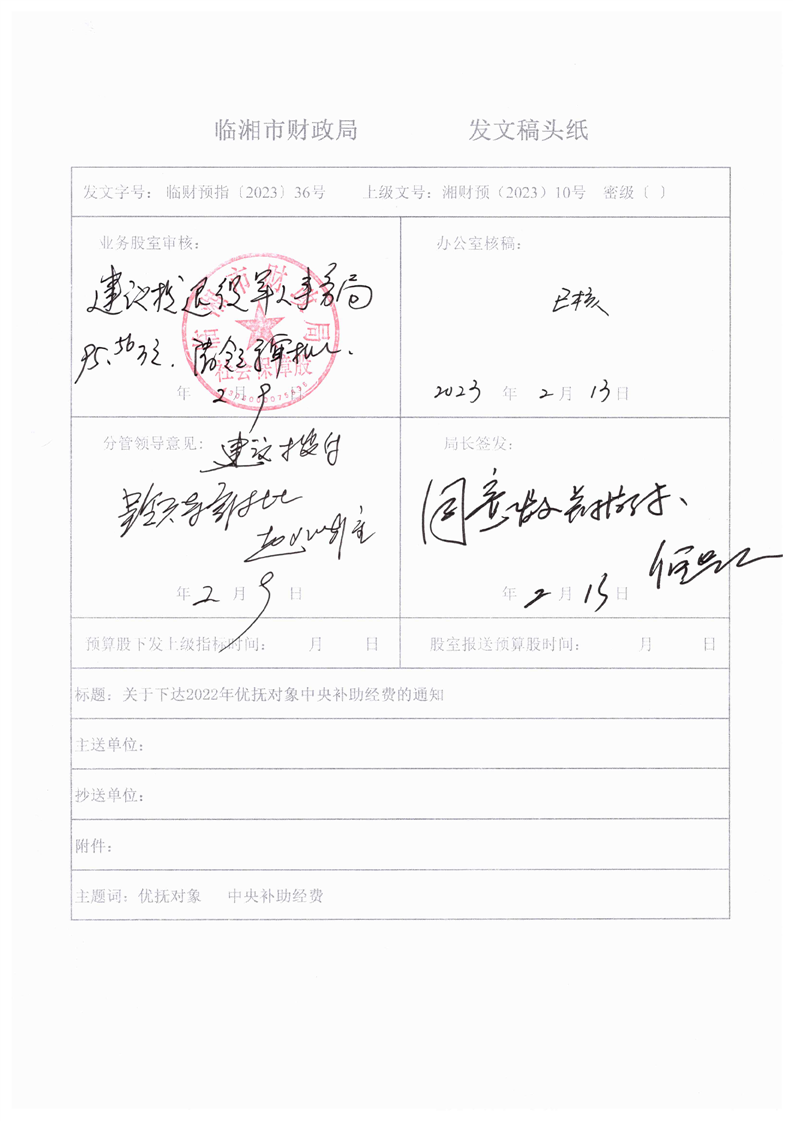 临湘市财政局 发文稿头纸
发文字号： 临财预指〔2023〕36号 上级文号：湘财预（2023）10号 密级〔 〕
业务股室审核：
建议拨退役军人事务局
95.56万元．请领导审批．
临湘市财政局
社会保障股
年 2月 9日
办公室核稿：
已核
2023 年 2月 13日
分管领导意见：
建议拨付
年 2 月 9 日
局长签发：
同意
年 2月 13日
预算股下发上级指标时间： 月 日 股室报送预算股时间： 月 日
标题：关于下达2022年优抚对象中央补助经费的通知
主送单位：
抄送单位：
附件：
主题词：优抚对象 中央补助经费